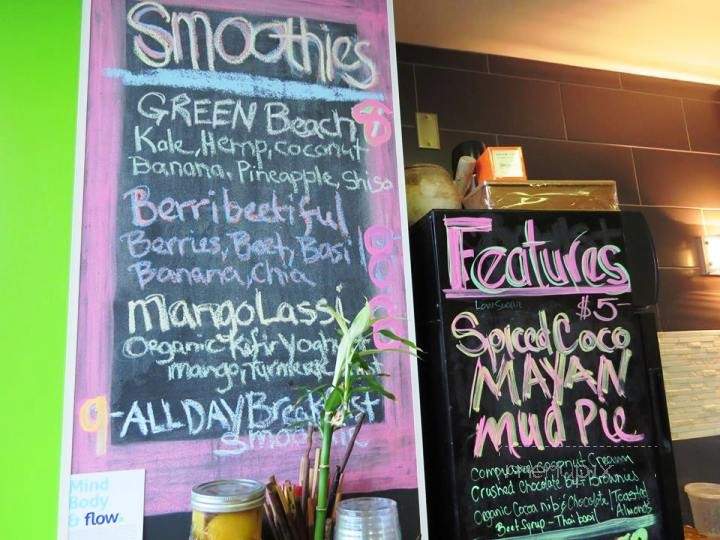 Smoothies
GREEN Beach
Kale, Hemp, coconut
Banana, Pineapple, Shiso
Berribeetiful
Berries, Beet, Basil
Banana, Chia
mango Lassi
Organic Kefir Yoghurt
mango, Turmeric
9 - ALL DAY Breakfast
Smoothie
Mind
Body
& flow.
Features
Low Sugar
$5-
Spiced Coco
MAYAN
mud Pie
Coconut Cream
Crushed Chocolate Brownies
Organic Cocoa nibs Chocolate / Toasted
Beet Syrup - Thai basil / Almonds